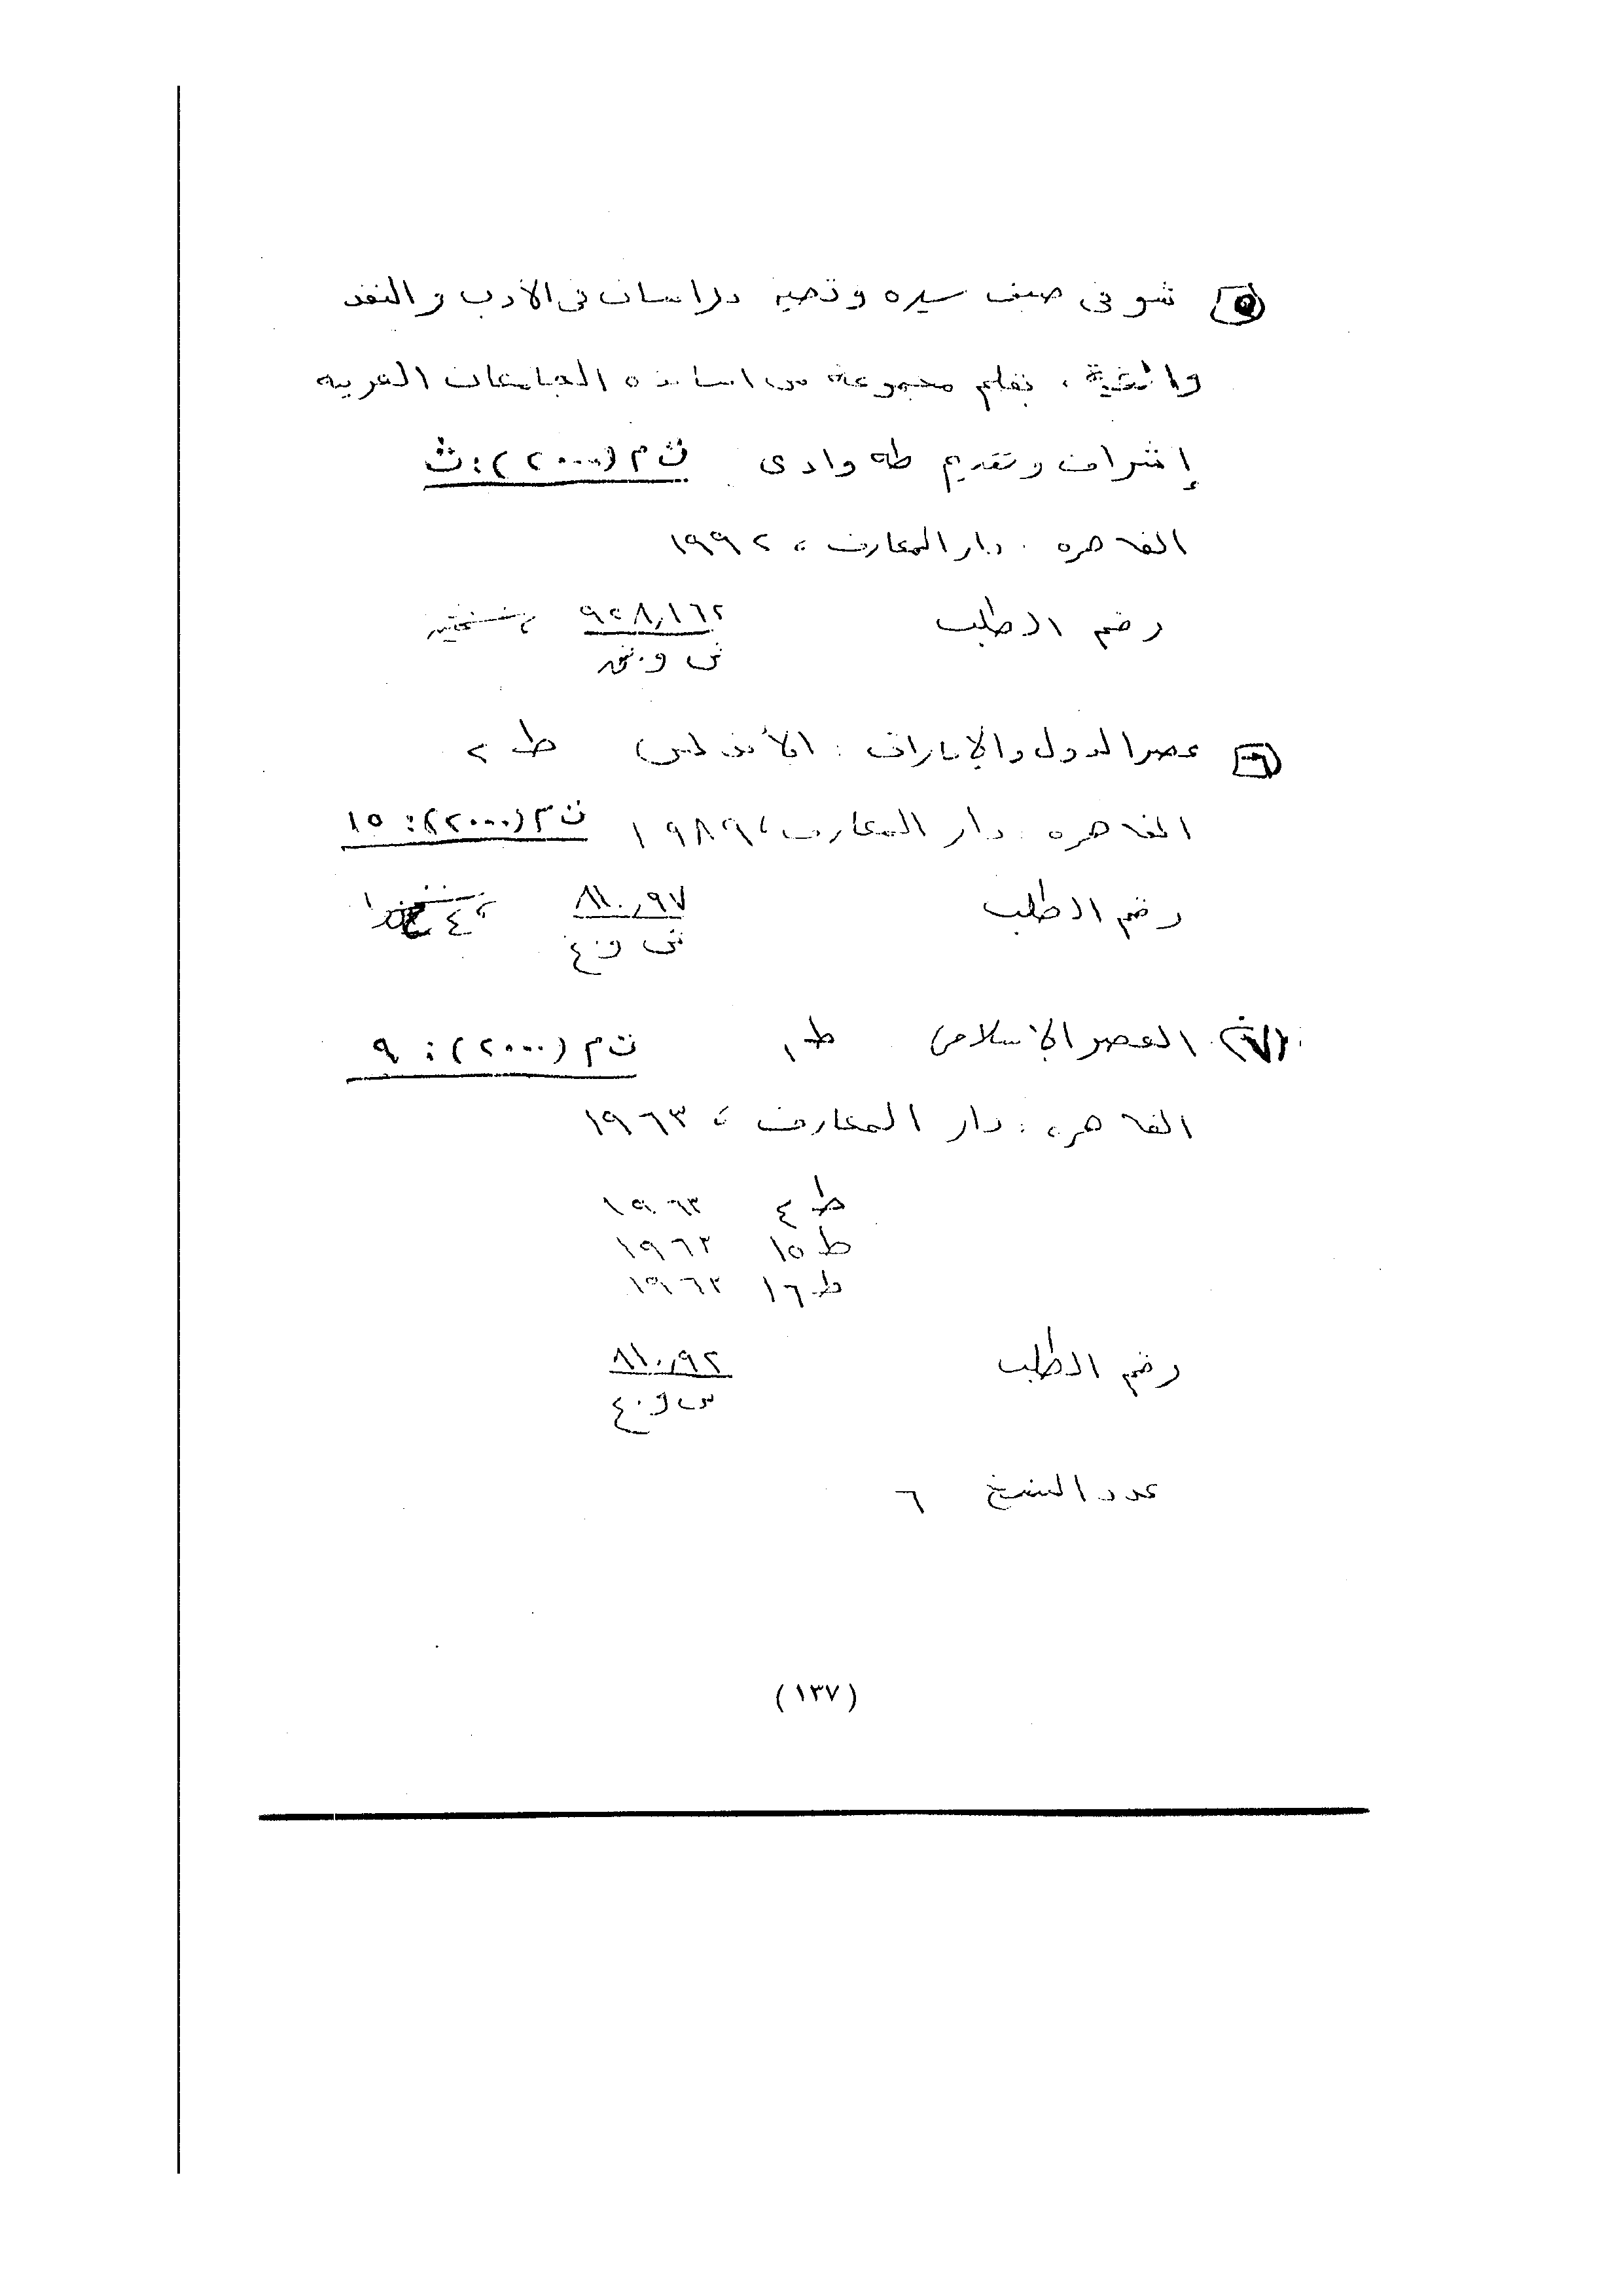 ٥ شوقى ضيف سيره وتحيه دراسات فى الأدب والنقد
بقلم مجموعة من اساتذه الجامعات العربيه
إشراف وتقديم طه وادى ت م (٢٠٠٠): ث
القاهره . دار المعارف ، ١٩٩٢
رقم الطلب ٩٢٨,١٦٢ ، نسختين
ش و . ش
٦ عصر الدول والإمارات : الأندلس ط ٢
القاهره . دار المعارف ، ١٩٨٩ ت م (٢٠٠٠): ١٥
رقم الطلب ٨١٠,٩٧ ، ٤
ش و . ع
٧ العصر الإسلامى ط ١ ت م (٢٠٠٠): ٩
القاهره . دار المعارف ، ١٩٦٣
ط ٤ ١٩٦٣
ط ١٥ ١٩٦٣
ط ١٦ ١٩٦٣
رقم الطلب ٨١٠,٩٢
س و . ع
عدد النسخ ٦
(١٣٧)